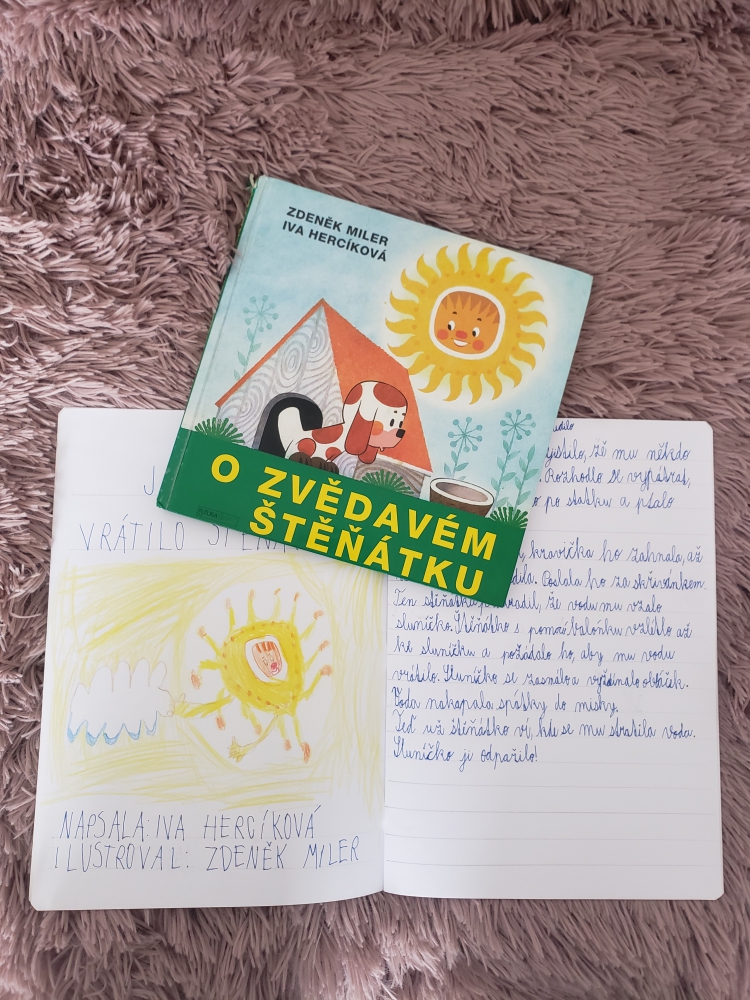 ZDENĚK MILER
IVA HERCÍKOVÁ
O ZVĚDAVÉM
ŠTĚŇÁTKU
J
VRÁTILO ŠTĚŇA
NAPSALA: IVA HERCÍKOVÁ
ILUSTROVAL: ZDENĚK MILER
ystilo, že mu někdo
Rozhodlo se vypátrat,
o po statku a ptalo
kravička ho zahnala, až
dila. Poslala ho za skřivánkem.
Ten štěňátku radil, že vodu mu vzalo
sluníčko. Štěňátko s pomocí balónku vzlétlo až
ke sluníčku a požádalo ho, aby mu vodu
vrátilo. Sluníčko se zasmálo a vyždímalo obláček.
Voda nakapala zpátky do misky.
Teď už štěňátko ví, kde se mu ztratila voda.
Sluníčko ji odpařilo!